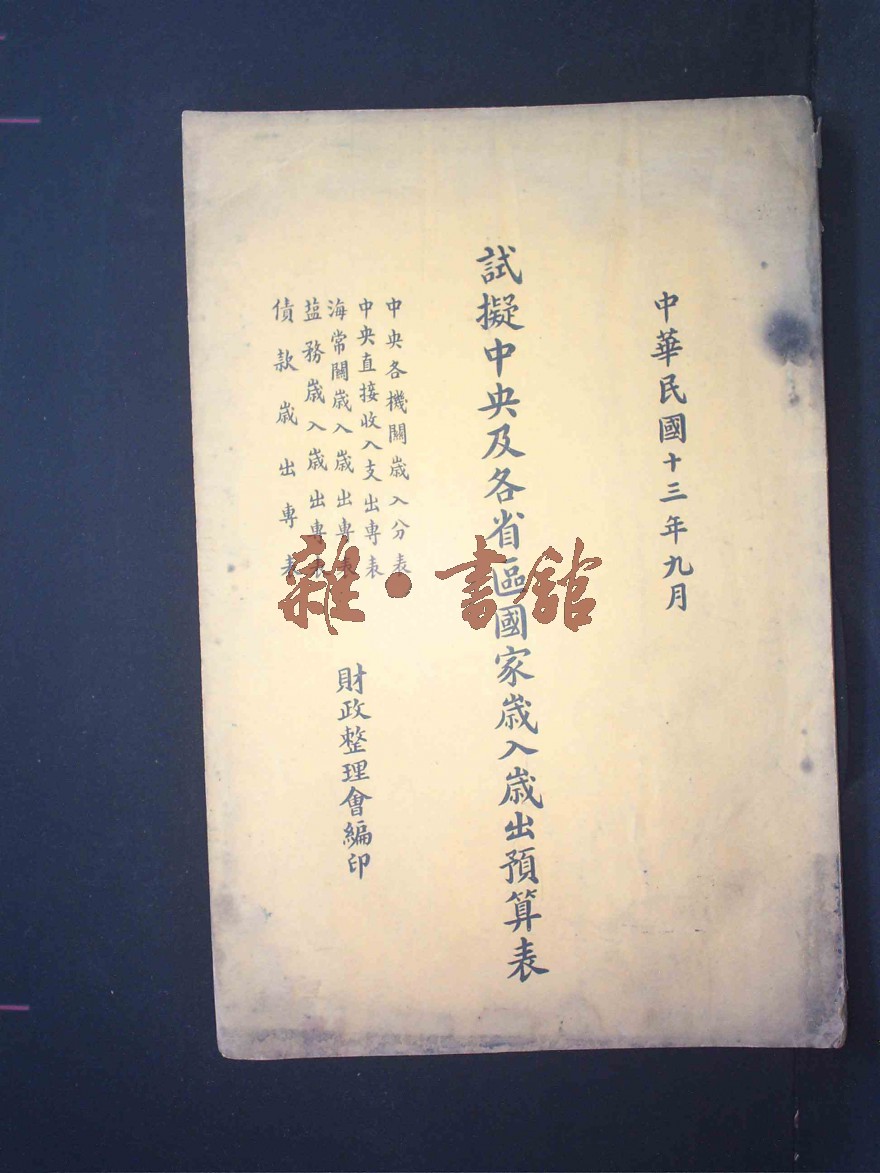 中華民國十三年九月
試擬中央及各省區國家歲入歲出預算表
中央各機關歲入分表
中央直接收入支出專表
海常關歲入歲出專表
鹽務歲入歲出專表
債款歲出專表
財政整理會編印
雜·書館